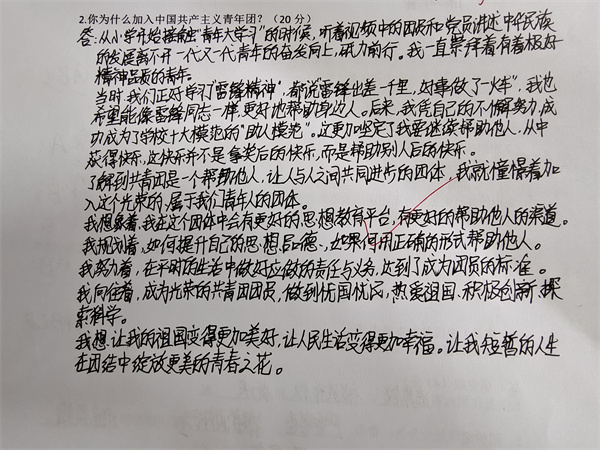 2.你为什么加入中国共产主义青年团？（20 分）
答：从小学开始接触"青年大学习"的时候，听着视频中的团员和党员讲述中华民族
的发展离不开一代又一代青年的奋发向上，砥力前行。我一直崇拜着有着极好
精神品质的青年。
当时，我们正好学习"雷锋精神"，都说雷锋出差一千里，好事做了一火车"，我也
希望能像雷锋同志一样，更好地帮助身边人。后来，我凭自己的不懈努力，成
功成为了学校十大模范的"助人模范"。这更加坚定了我要继续帮助他人，从中
获得快乐，这快乐并不是拿奖后的快乐，而是帮助别人后的快乐。
了解到共青团是一个帮助他人，让人与人之间共同进步的团体，我就憧憬着加
入这个光荣的，属于我们青年人的团体。
我想象着，我在这个团体中会有更好的思想教育平台，有更好的帮助他人的渠道。
我规划着，如何提升自己的思想品德，如果何用正确的形式帮助他人。
我努力着，在平时的生活中做好应做的责任与义务，达到了成为团员的标准。
我向往着，成为光荣的共青团团员，做到忧国忧民，热爱祖国，积极创新，探
索科学。
我想，让我的祖国变得更加美好，让人民生活变得更加幸福。让我短暂的人生
在团结中绽放更美的青春之花。